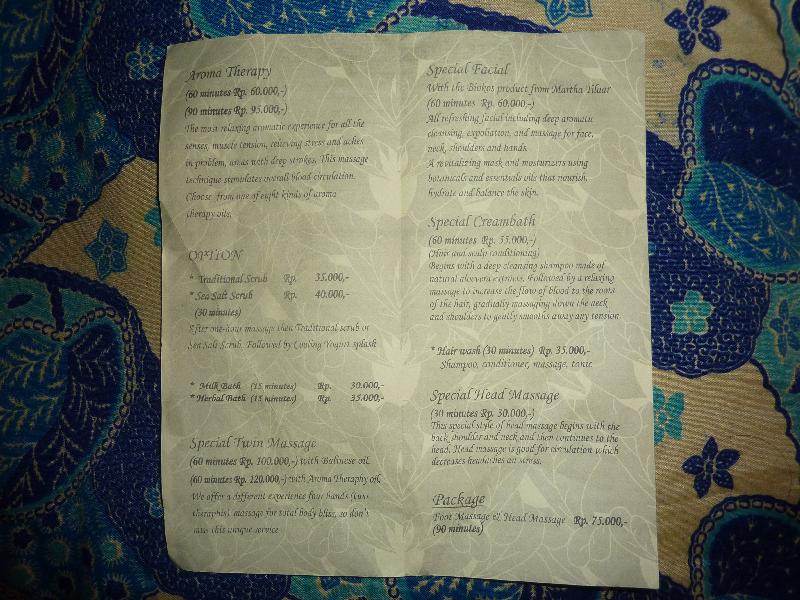 Aroma Therapy
(60 minutes Rp. 60.000,-)
(90 minutes Rp. 95.000,-)
The most relaxing aromatic experience for all the
senses, muscle tension, relieving stress and aches
in problem, areas with deep strokes. This massage
technique stimulates overall blood circulation.
Choose from one of eight kinds of aroma
therapy oils.
OPTION
* Traditional Scrub Rp. 35.000,-
* Sea Salt Scrub Rp. 40.000,-
(30 minutes)
After one-hour massage then Traditional scrub or
Sea Salt Scrub. Followed by Cooling Yogurt splash
* Milk Bath (15 minutes) Rp. 30.000,-
* Herbal Bath (15 minutes) Rp. 35.000,-
Special Twin Massage
(60 minutes Rp. 100.000,-) with Balinese oil.
(60 minutes Rp. 120.000,-) with Aroma Theraphy oil,
We offer a different experience four hands (two
theraphis), massage for total body bliss, so don't
miss this unique service
Special Facial
With the Biokos product from Martha Tilaar
(60 minutes Rp. 60.000,-)
All refreshing facial including deep aromatic
cleansing, expoliation, and massage for face,
neck, shoulders and hands.
A revitalizing mask and mosturizers using
botanicals and essentials oils that nourish,
hydrate and balance the skin.
Special Creambath
(60 minutes Rp. 55.000,-)
(Hair and scalp conditioning)
Begins with a deep cleansing shampoo made of
natural aloevera extracts. Followed by a relaxing
massage to increase the flow of blood to the roots
of the hair, gradually massaging down the neck
and shoulders to gently smooths away any tension.
* Hair wash (30 minutes) Rp. 35.000,-
Shampoo, conditioner, massage, tonic
Special Head Massage
(30 minutes Rp. 30.000,-)
This special style of head massage begins with the
back, shoulder and neck and then continues to the
head. Head massage is good for circulation which
decreases headaches an stress.
Package
Foot Massage & Head Massage Rp. 75.000,-
(90 minutes)